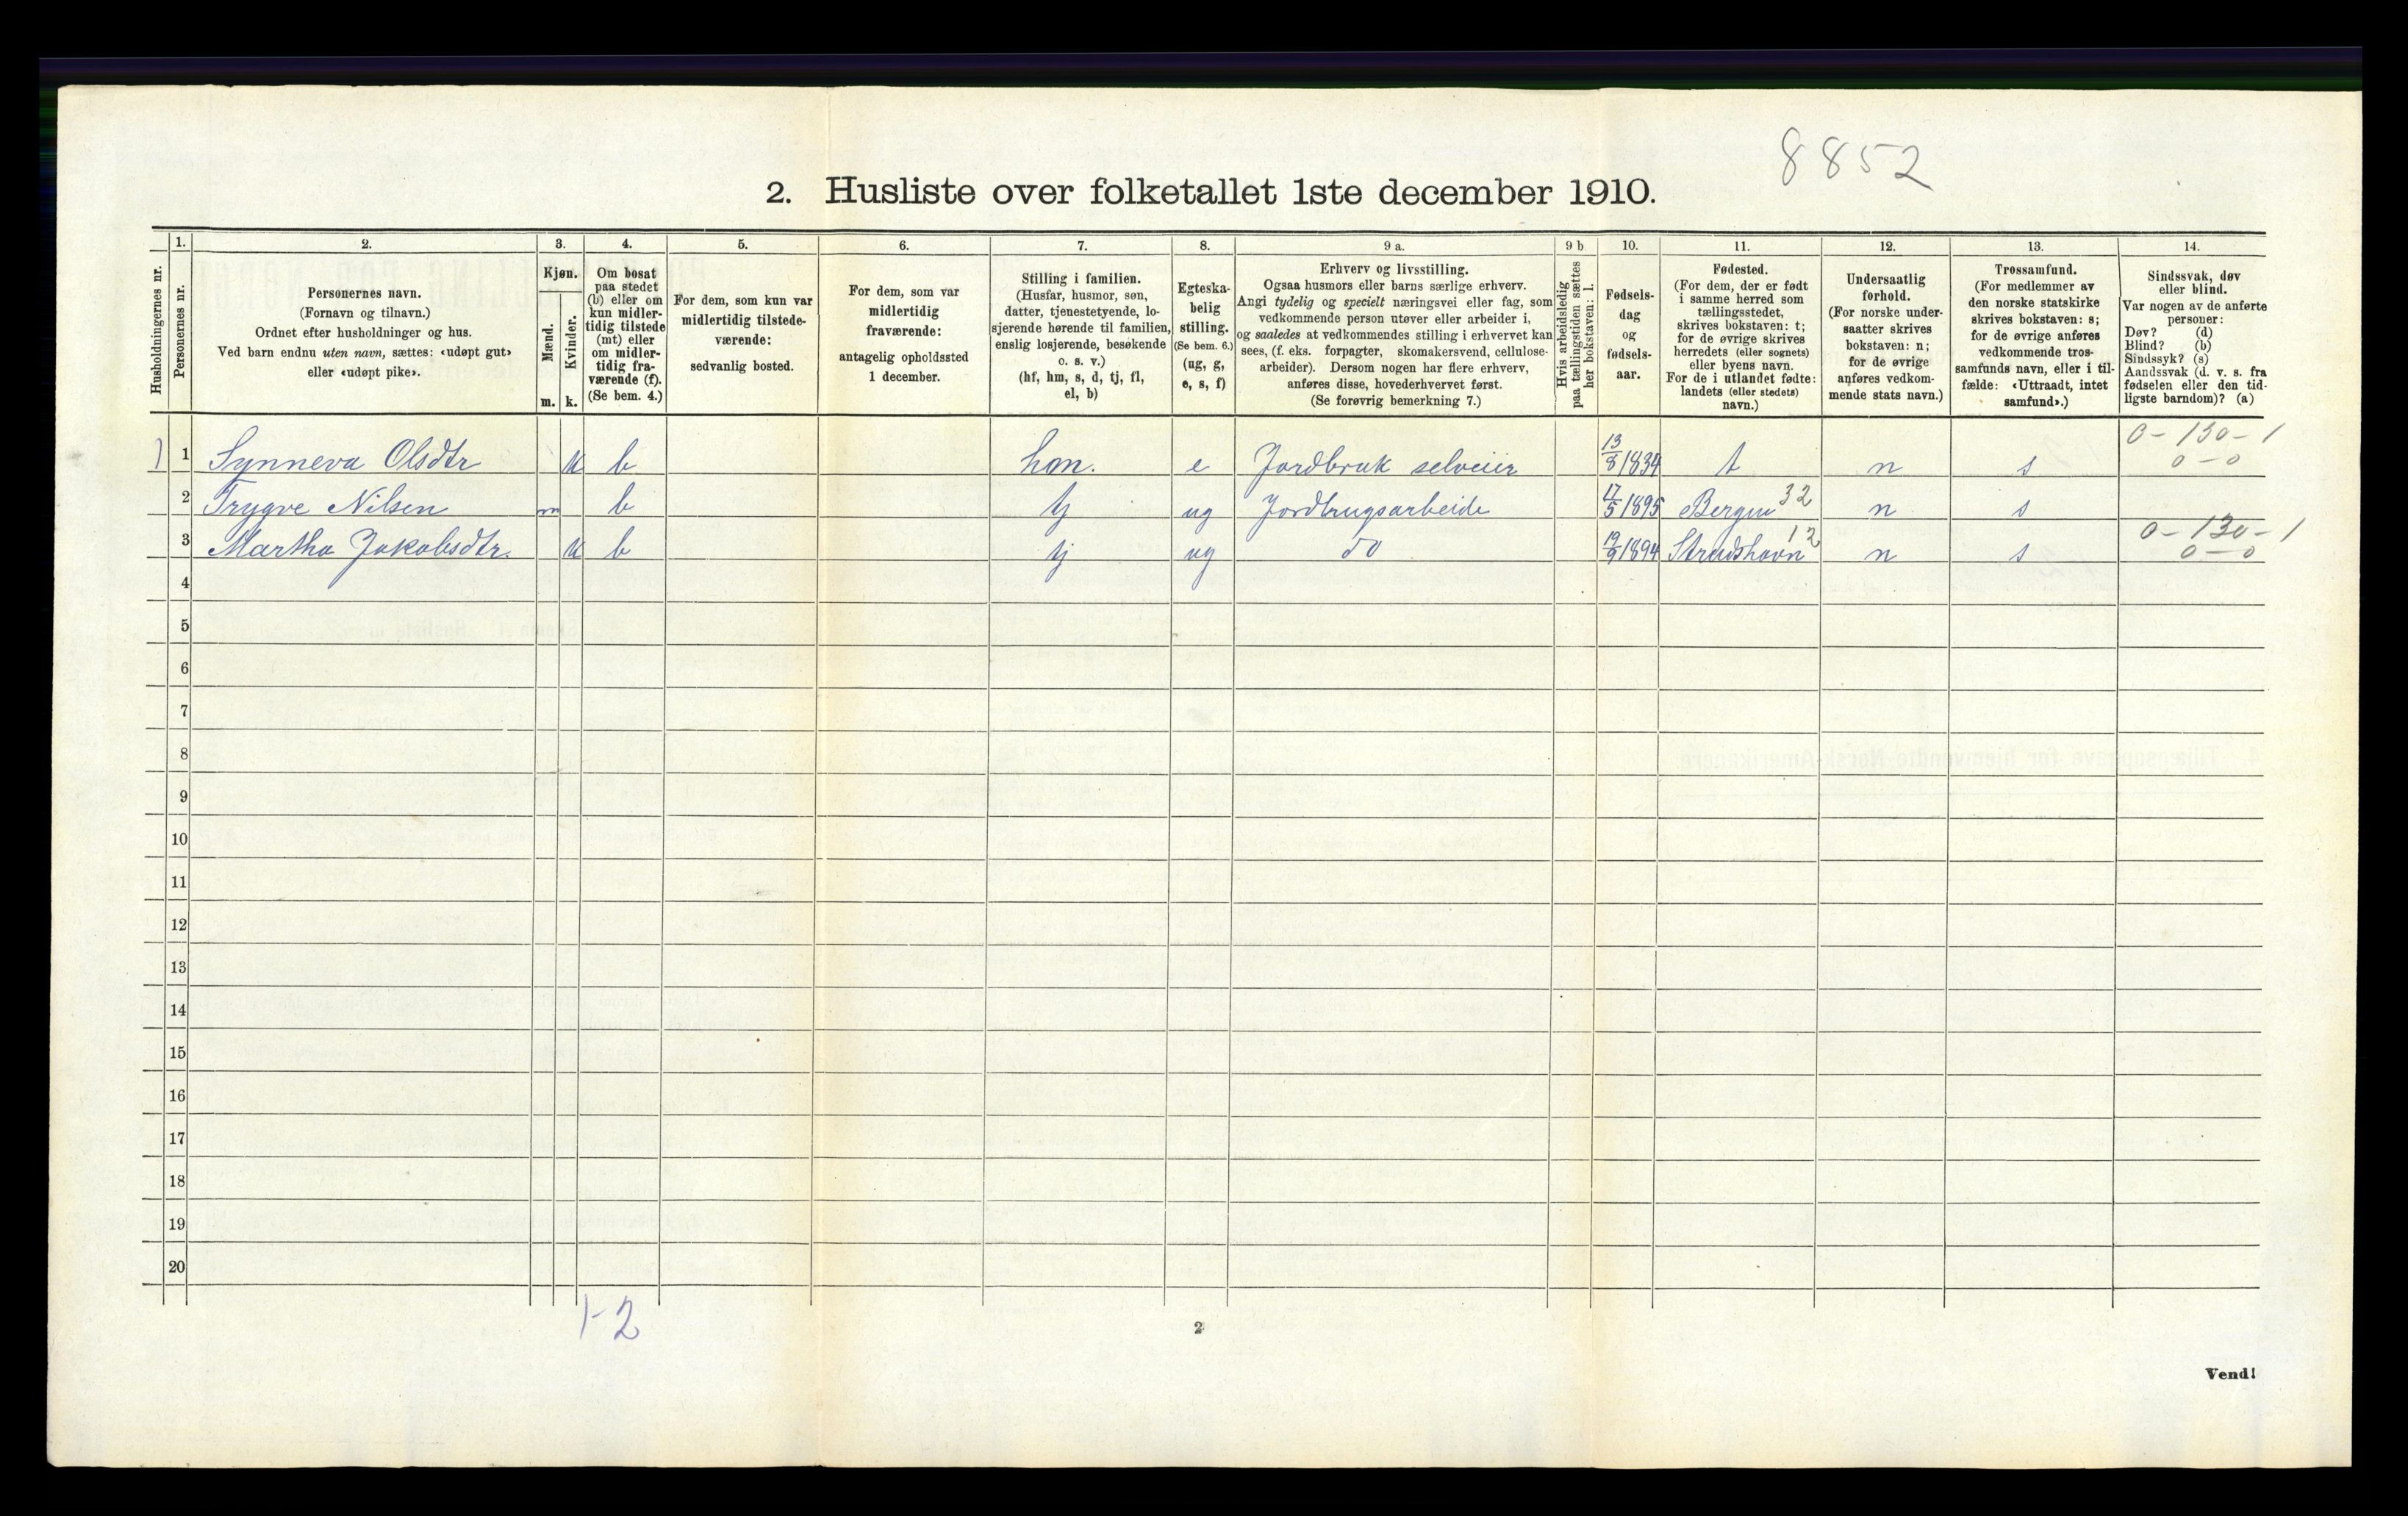 8852
2. Husliste over folketallet 1ste december 1910.
Husholdningernes nr.
1.
Personernes nr.
2.
Personernes navn.
(Fornavn og tilnavn.)
Ordnet efter husholdninger og hus.
Ved barn endnu uten navn, sættes: «udøpt gut»
eller «udøpt pike».
3.
Kjøn.
Mænd.
Kvinder.
m. k.
4.
Om bosat
paa stedet
(b) eller om
kun midler-
tidig tilstede
(mt) eller
om midler-
tidig fra-
værende (f).
(Se bem. 4.)
5.
For dem, som kun var
midlertidig tilstede-
værende:
sedvanlig bosted.
6.
For dem, som var
midlertidig
fraværende:
antagelig opholdssted
1 december.
7.
Stilling i familien.
(Husfar, husmor, søn,
datter, tjenestetyende, lo-
sjerende hørende til familien,
enslig losjerende, besøkende
o. s. v.)
(hf, hm, s, d, tj, fl,
el, b)
8.
Egteska-
belig
stilling.
(Se bem. 6.)
(ug, g,
e, s, f)
9 a.
Erhverv og livsstilling.
Ogsaa husmors eller barns særlige erhverv.
Angi tydelig og specielt næringsvei eller fag, som
vedkommende person utøver eller arbeider i,
og saaledes at vedkommendes stilling i erhvervet kan
sees, (f. eks. forpagter, skomakersvend, cellulose-
arbeider). Dersom nogen har flere erhverv,
anføres disse, hovederhvervet først.
(Se forøvrig bemerkning 7.)
9 b
Hvis arbeidsledig
paa tællingstiden sættes
her bokstaven: l.
10.
Fødsels-
dag
og
fødsels-
aar.
11.
Fødested.
(For dem, der er født
i samme herred som
tællingsstedet,
skrives bokstaven: t;
for de øvrige skrives
herredets (eller sognets)
eller byens navn.
For de i utlandet fødte:
landets (eller stedets)
navn.)
12.
Undersaatlig
forhold.
(For norske under-
saatter skrives
bokstaven: n;
for de øvrige
anføres vedkom-
mende stats navn.)
13.
Trossamfund.
(For medlemmer av
den norske statskirke
skrives bokstaven: s;
for de øvrige anføres
vedkommende tros-
samfunds navn, eller i til-
fælde: «Uttraadt, intet
samfund».)
14.
Sindssvak, døv
eller blind.
Var nogen av de anførte
personer:
Døv? (d)
Blind? (b)
Sindssyk? (s)
Aandssvak (d. v. s. fra
fødselen eller den tid-
ligste barndom)? (a)
1 Synneva Olsdtr k b hm. e Jordbruk selveier 13/8 1834 t n s 0-130-1 0-0
2 Trygve Nilsen m b tj ug Jordbrugsarbeide 17/5 1895 Bergen 32 n s
3 Martha Jakobsdtr. k b tj ug do 19/9 1894 Strudshavn 12 n s 0-130-1 0-0
4
5
6
7
8
9
10
11
12
13
14
15
16
17
18
19
20
1-2
2
Vend!